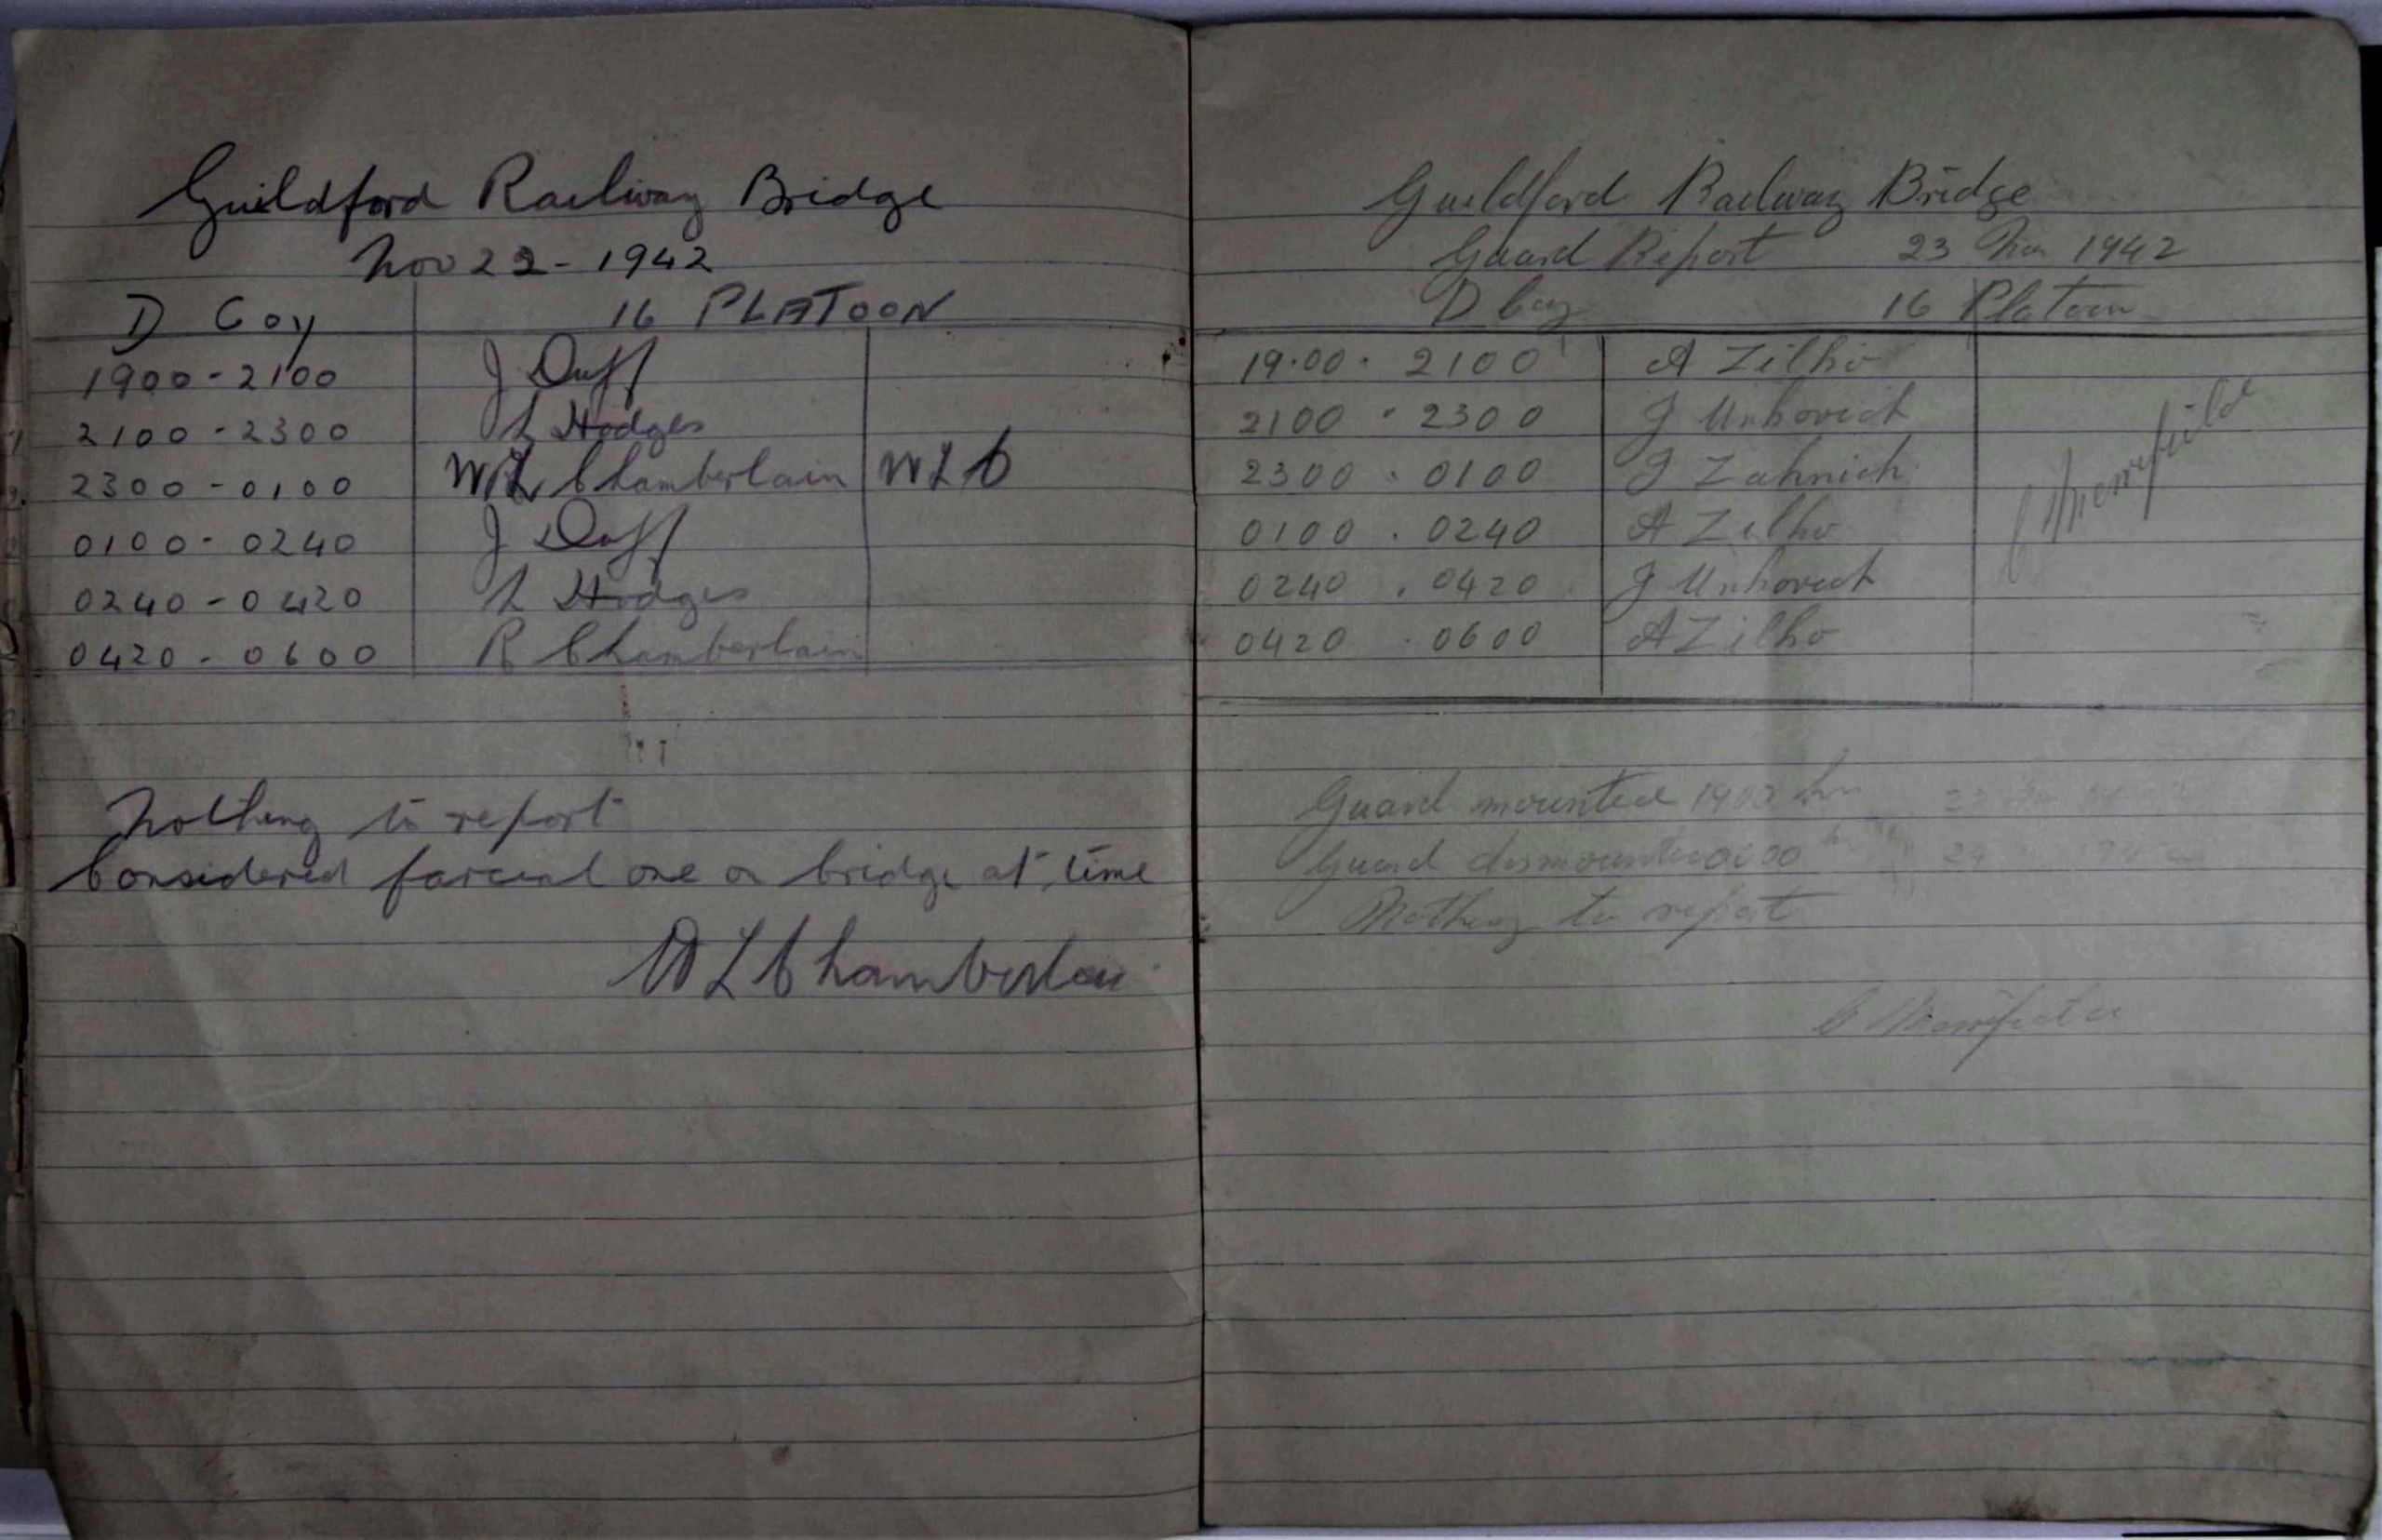 Guildford Railway Bridge
Nov 22 - 1942
D Coy 16 PLATOON
1900 - 2100 J Duff
2100 - 2300 L Hodges
2300 - 0100 W L Chamberlain W L C
0100 - 0240 J Duff
0240 - 0420 L Hodges
0420 - 0600 R Chamberlain
Nothing to report
Considered farcial one on bridge at time
W L Chamberlain
Guildford Railway Bridge
Guard Report 23 Nov 1942
D Coy 16 Platoon
19.00 . 2100 A Zilko
2100 . 2300 J Unkovich
2300 . 0100 J Zahnich
0100 . 0240 A Zilko
0240 . 0420 J Unkovich
0420 . 0600 A Zilko
C Merrifield
Guard mounted 1900 hrs
Guard dismounted 0600
Nothing to report
C Merrifield